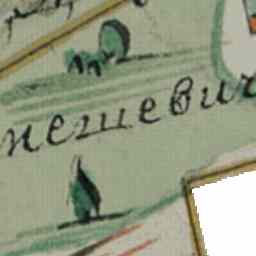 нешевич